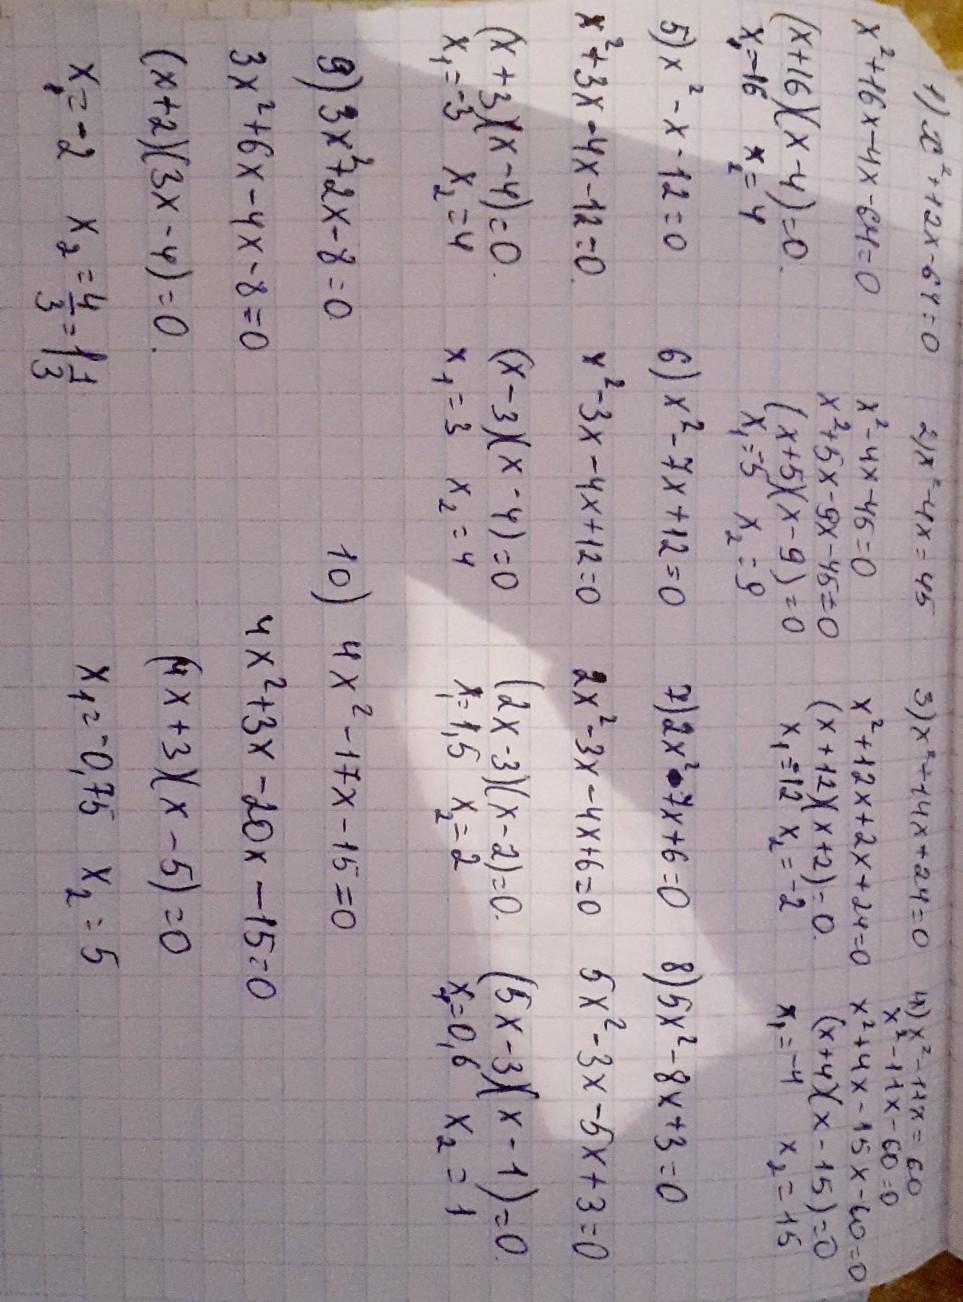 1) x²+12x-64=0
x²+16x-4x-64=0
(x+16)(x-4)=0.
x₁=-16 x₂=4
2) x²-4x=45
x²-4x-45=0
x²+5x-9x-45=0
(x+5)(x-9)=0
x₁=-5 x₂=9
3) x²+14x+24=0
x²+12x+2x+24=0
(x+12)(x+2)=0.
x₁=-12 x₂=-2
4) x²-11x=60
x²-11x-60=0
x²+4x-15x-60=0
(x+4)(x-15)=0
x₁=-4 x₂=15
5) x²-x-12=0
x²+3x-4x-12=0.
(x+3)(x-4)=0.
x₁=-3 x₂=4
6) x²-7x+12=0
x²-3x-4x+12=0
(x-3)(x-4)=0
x₁=3 x₂=4
7) 2x²-7x+6=0
2x²-3x-4x+6=0
(2x-3)(x-2)=0.
x₁=1,5 x₂=2
8) 5x²-8x+3=0
5x²-3x-5x+3=0
(5x-3)(x-1)=0.
x₁=0,6 x₂=1
9) 3x²+2x-8=0
3x²+6x-4x-8=0
(x+2)(3x-4)=0.
x₁=-2 x₂=4/3=1 1/3
10) 4x²-17x-15=0
4x²+3x-20x-15=0
(4x+3)(x-5)=0
x₁=-0,75 x₂=5